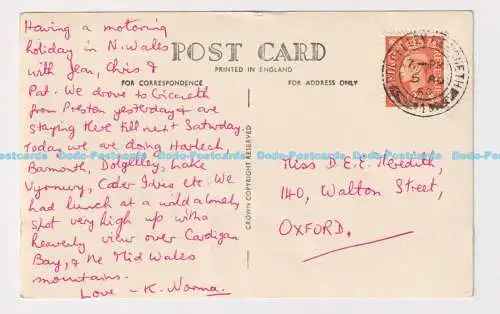 Having a motoring
holiday in N. Wales
with Jean, Chris &
Pat. We drove to Criccieth
from Preston yesterday & are
staying there till next Saturday.
Today we are doing Harlech
Barmouth, Dolgelley, Lake
Vyrnwy, Cader Idris etc. We
had lunch at a wild & lonely
spot very high up with a
heavenly view over Cardigan
Bay, & the Mid Wales
mountains.
Love - K. Norma.
POST CARD
PRINTED IN ENGLAND
FOR CORRESPONDENCE
FOR ADDRESS ONLY
CROWN COPYRIGHT RESERVED
7-PM
5 AU
Miss D.E.E. Meredith,
140, Walton Street,
OXFORD.
Dodo-Postcards